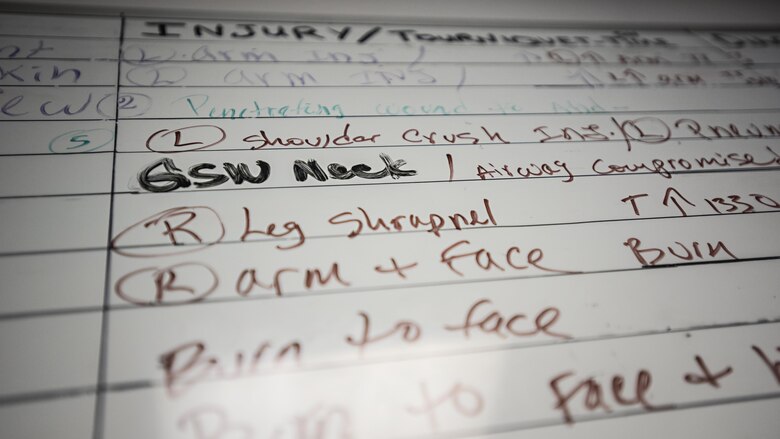 INJURY/TOURNIQUET TIME
(L) arm INJ /
kin (L) arm INJ /
ew (2) Penetrating wound to Abd
(5) (L) Shoulder Crush INJ./(L) Pneum
GSW Neck / Airway Compromise
(R) Leg Shrapnel T ↑ 1330
(R) arm + Face Burn
Burn to face
Burn to Face +